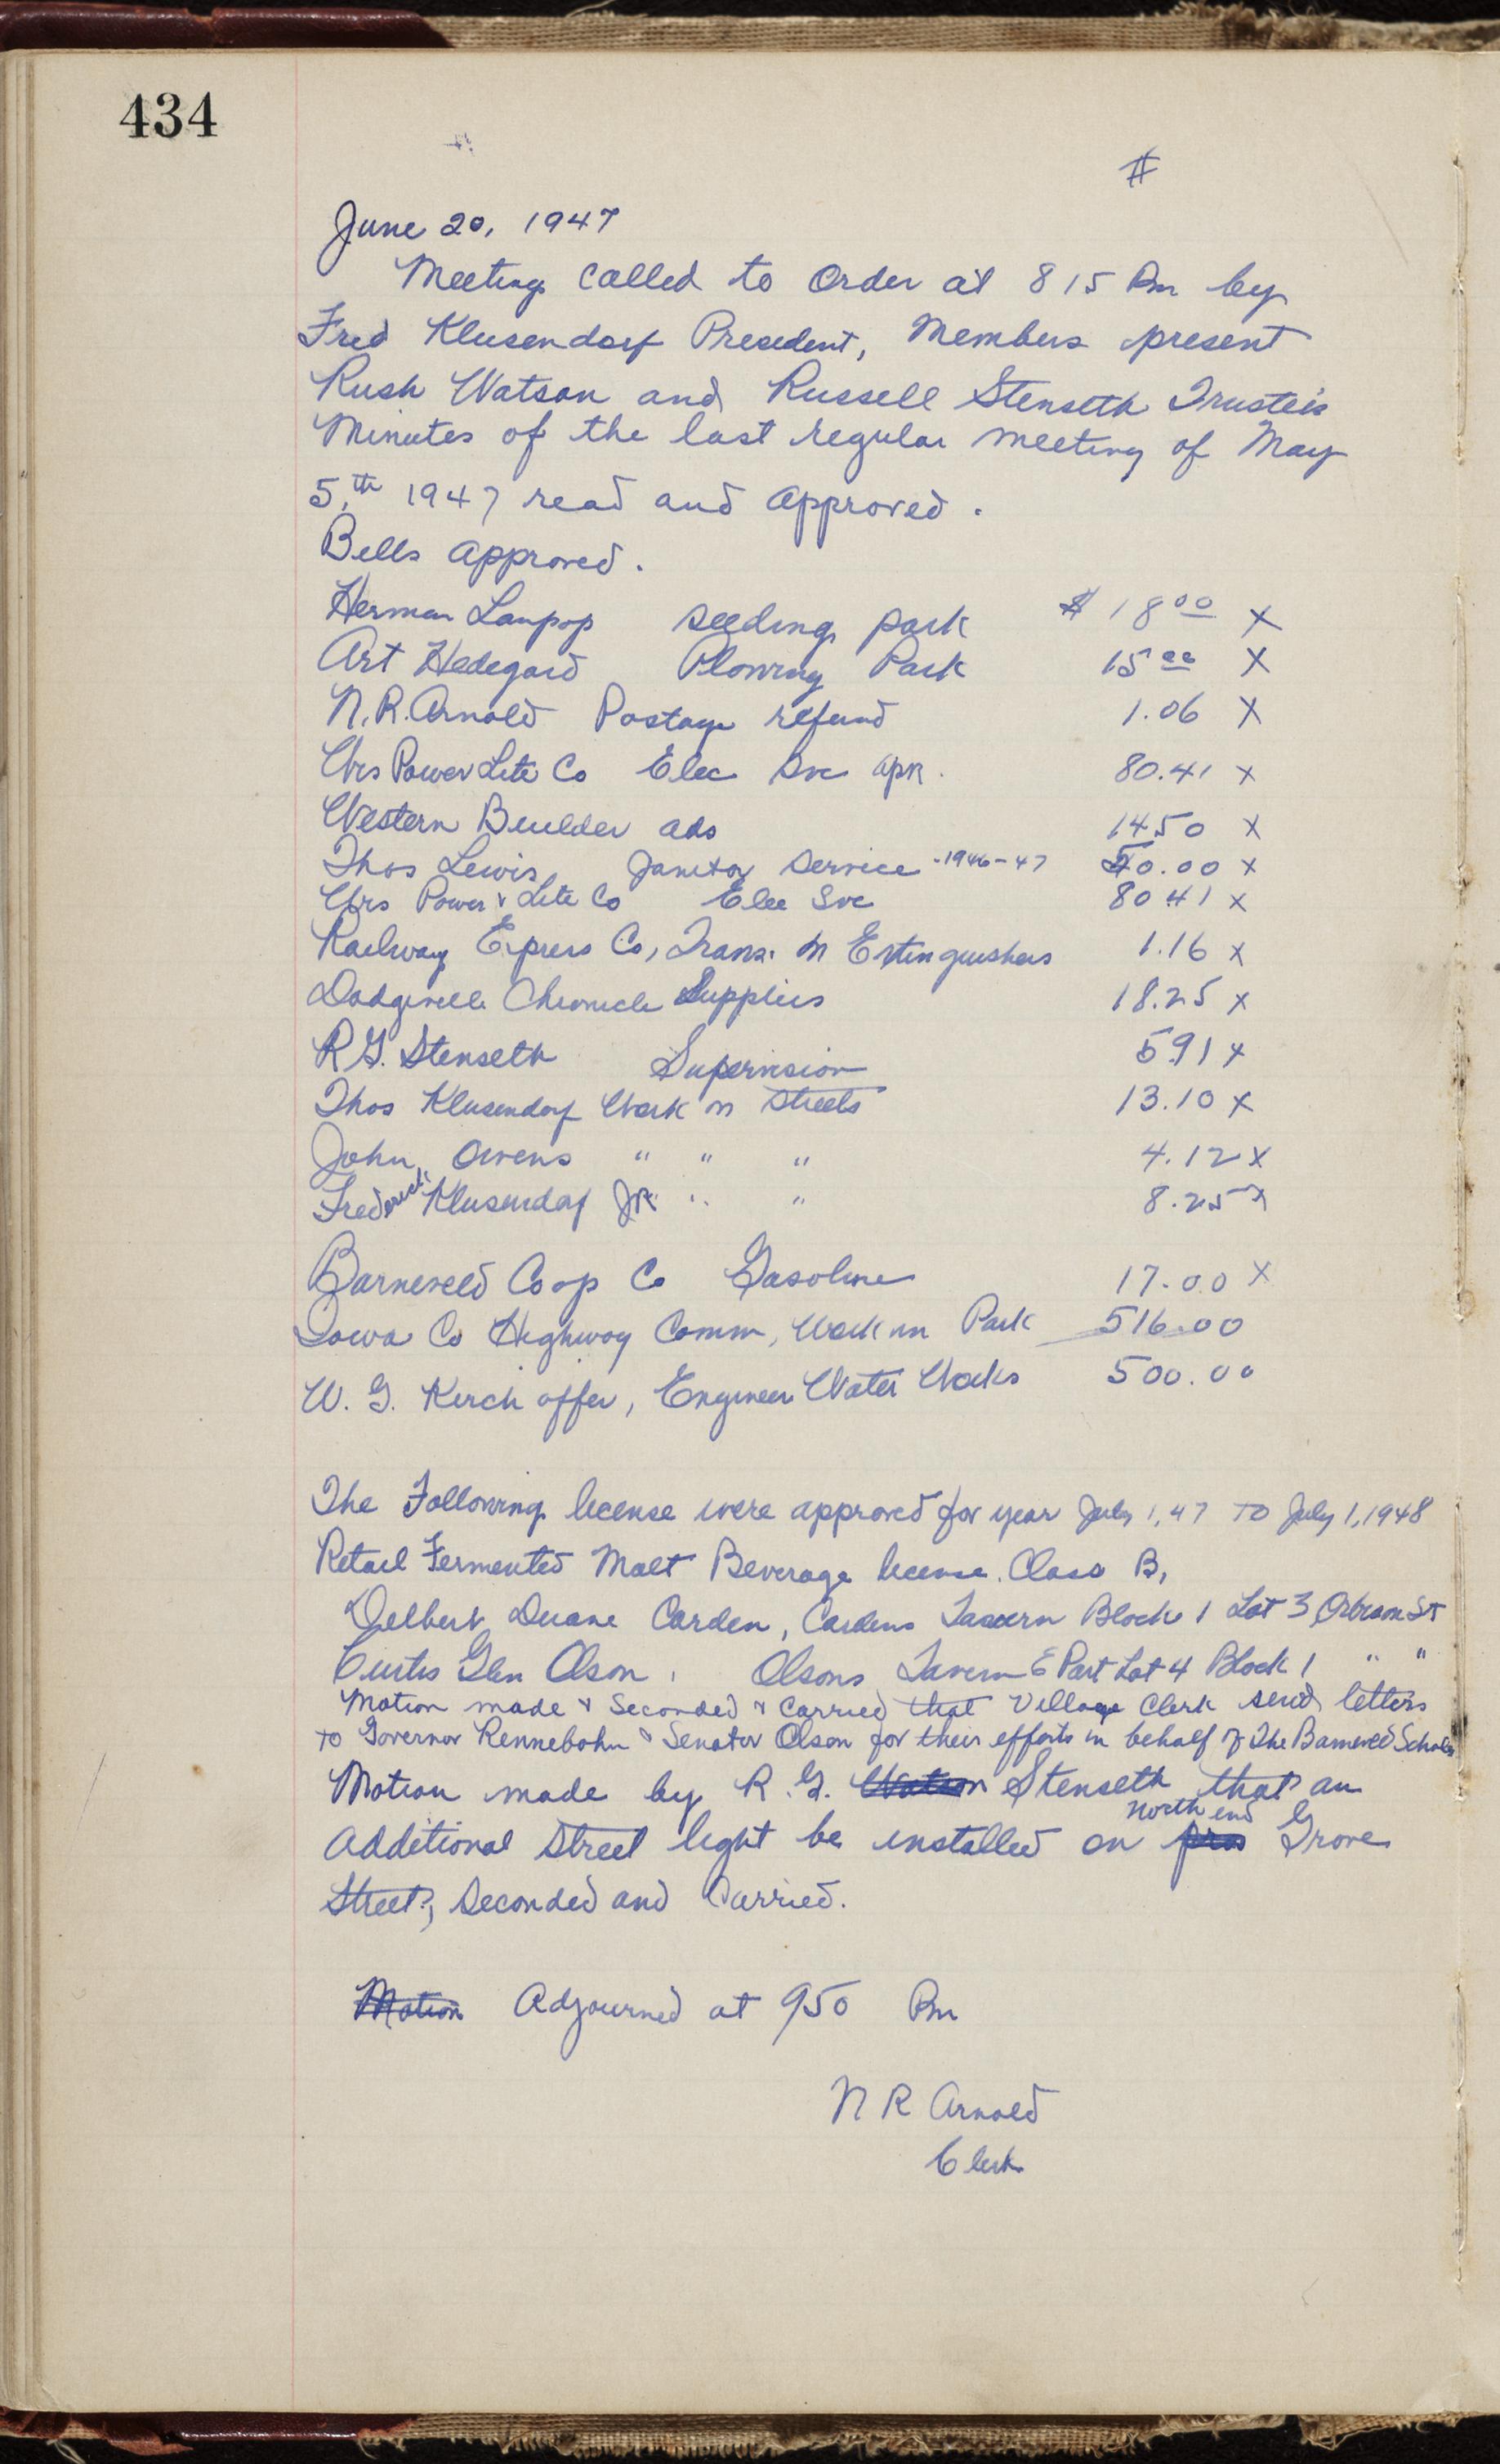 434
#
June 20, 1947
Meeting Called to Order at 8 15 Pm by
Fred Klusendorf President, Members present
Rush Watson and Russell Stenseth Trustees
Minutes of the last regular meeting of May
5th 1947 read and approved.
Bills approved.
Herman Lampop seeding park $ 18 00 X
Art Hedegard Plowing Park 15 00 X
N.R. Arnold Postage refund 1.06 X
Wis Power Lite Co Elec Svc apr. 80.41 X
Western Builder ads 14 50 X
Thos Lewis Janitor Service 1946-47 50.00 X
Wis Power & Lite Co Elec Svc 80 41 X
Railway Express Co, Trans. on Extinguishers 1.16 X
Dodgeville Chronicle Supplies 18.25 X
R G. Stenseth Supervision 5.91 X
Thos Klusendorf Work on Streets 13.10 X
John Owens " " " 4.12 X
Frederick Klusendorf JR " " 8.25 X
Barneveld Co op Co Gasoline 17.00 X
Iowa Co Highway Comm, Work on Park 516.00
W. G. Kirchoffer, Engineer Water Works 500.00
The Following license were approved for year July 1, 47 TO July 1, 1948
Retail Fermented Malt Beverage license. Class B,
Delbert Duane Carden, Cardens Tavern Block 1 Lot 3 Orbison St
Curtis Glen Olson, Olsons Tavern E Part Lot 4 Block 1 " "
Motion made & Seconded & Carried that Village Clerk send letters
to Governor Rennebohm & Senator Olson for their efforts in behalf of The Barneveld Schools
Motion made by R. G. Watson Stenseth that an
additional street light be installed on north end Grove
Street, seconded and Carried.
Motion Adjourned at 9 50 Pm
N R Arnold
Clerk